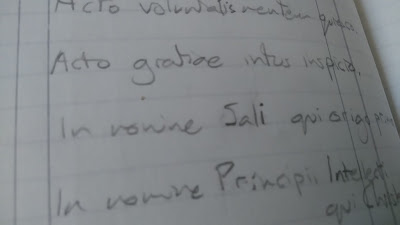 Acto voluntatis mentem
Acto gratiae intus inspicio,
In nomine Sali qui origo
In nomine Principii Intelecti
qui